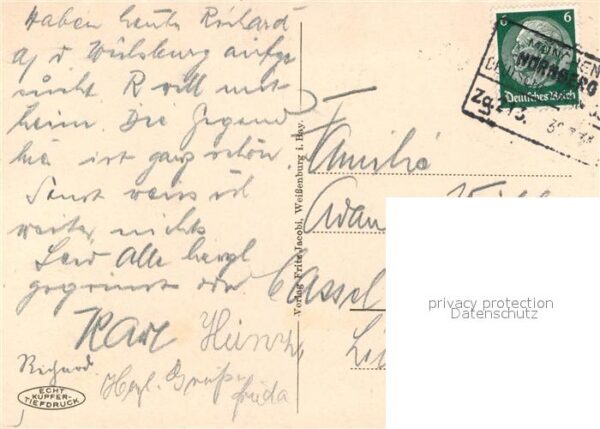 Haben heute Richard
a/d Wülzburg aufge
sucht R will mit
heim. Die Gegend
hie ist ganz schön.
Sonst weiss ich
weiter nichts
Seid Alle herzl
gegrüsst von
Karl Heinz
Richard
Herzl. Grüße
Frieda
ECHT
KUPFER-
TIEFDRUCK
Verlag Fritz Jacobi, Weißenburg i. Bay.
6 6
Deutsches Reich
MÜNCHEN
NÜRNBERG
Zg. 213
Familie
Adam
Cassel
privacy protection
Datenschutz